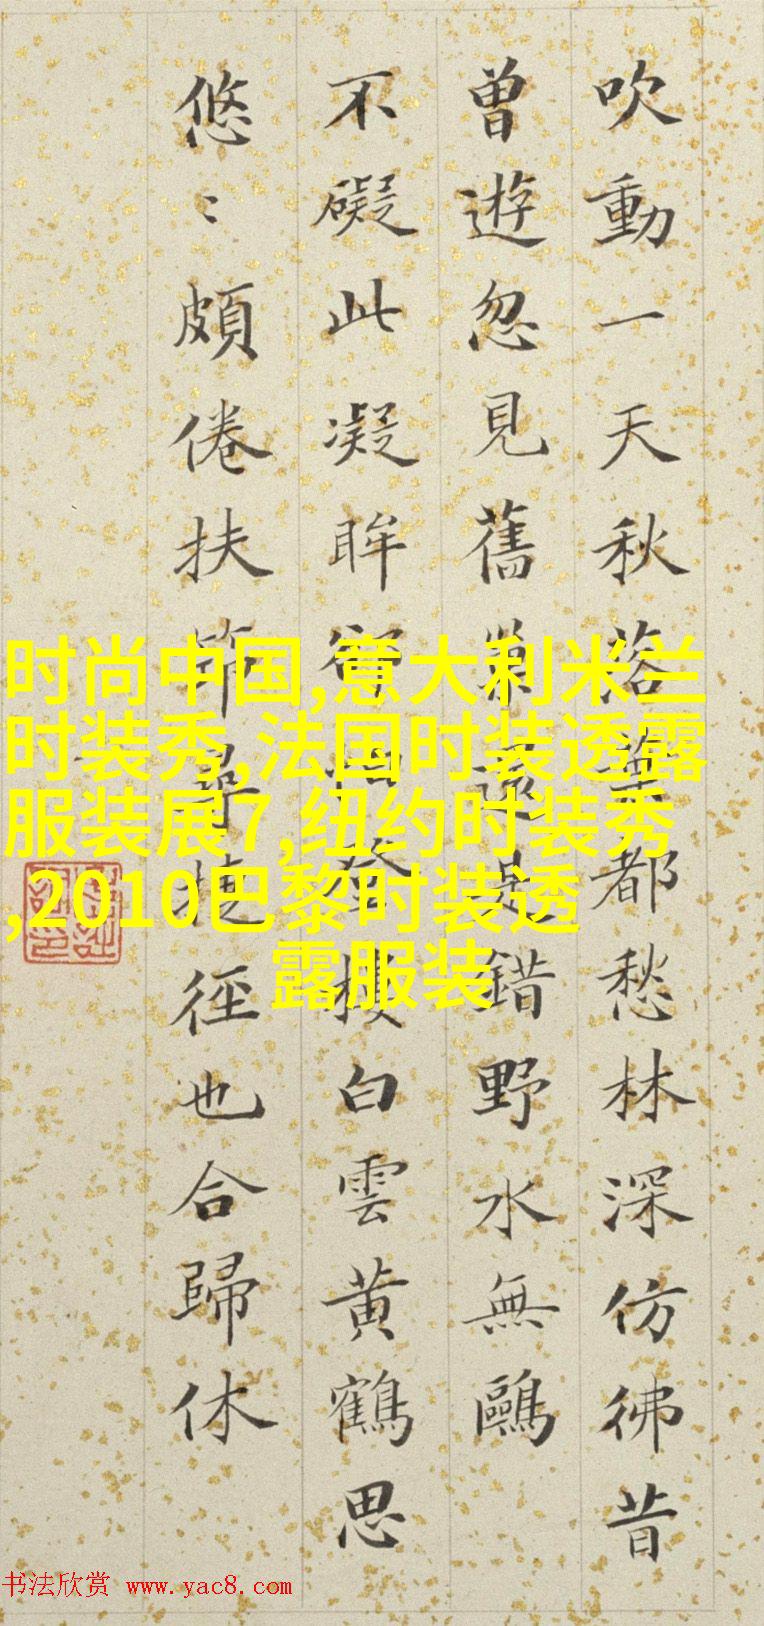 吹動一天秋落葉都愁林深仿彿昔
曾遊忽見舊巢還是錯野水無鷗
不礙此凝眸登樓白雲黃鶴思
悠〻頗倦扶筇尋捷徑也合歸休
时尚中国,意大利米兰
时装秀,法国时装透露
服装展7,纽约时装秀
,2010巴黎时装透
露服装
书法欣赏 www.yac8.com